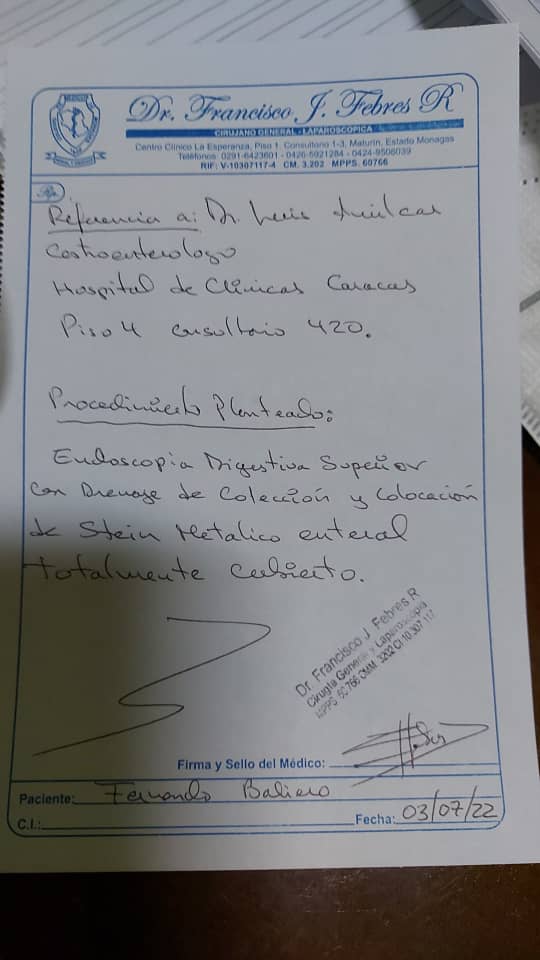 Dr. Francisco J. Febres R
CIRUJANO GENERAL - LAPAROSCOPICA
Centro Clínico La Esperanza, Piso 1. Consultorio 1-3, Maturín, Estado Monagas
Teléfonos: 0291-6423601 - 0426-5921284 - 0424-9506039
RIF: V-10307117-4 CM. 3.202 MPPS. 60766
Rp.
Referencia a: Dr. Luis
Gastroenterologo
Hospital de Clinicas Caracas
Piso 4 consultorio 420.
Procedimiento Planteado:
Endoscopia Digestiva Superior
con Drenaje de Colección y Colocación
de Stein Metalico enteral
totalmente cubierto.
Dr. Francisco J. Febres R
Cirugía General y Laparoscopia
Firma y Sello del Médico:
Paciente: Fernando
C.I.: Fecha: 03/07/22